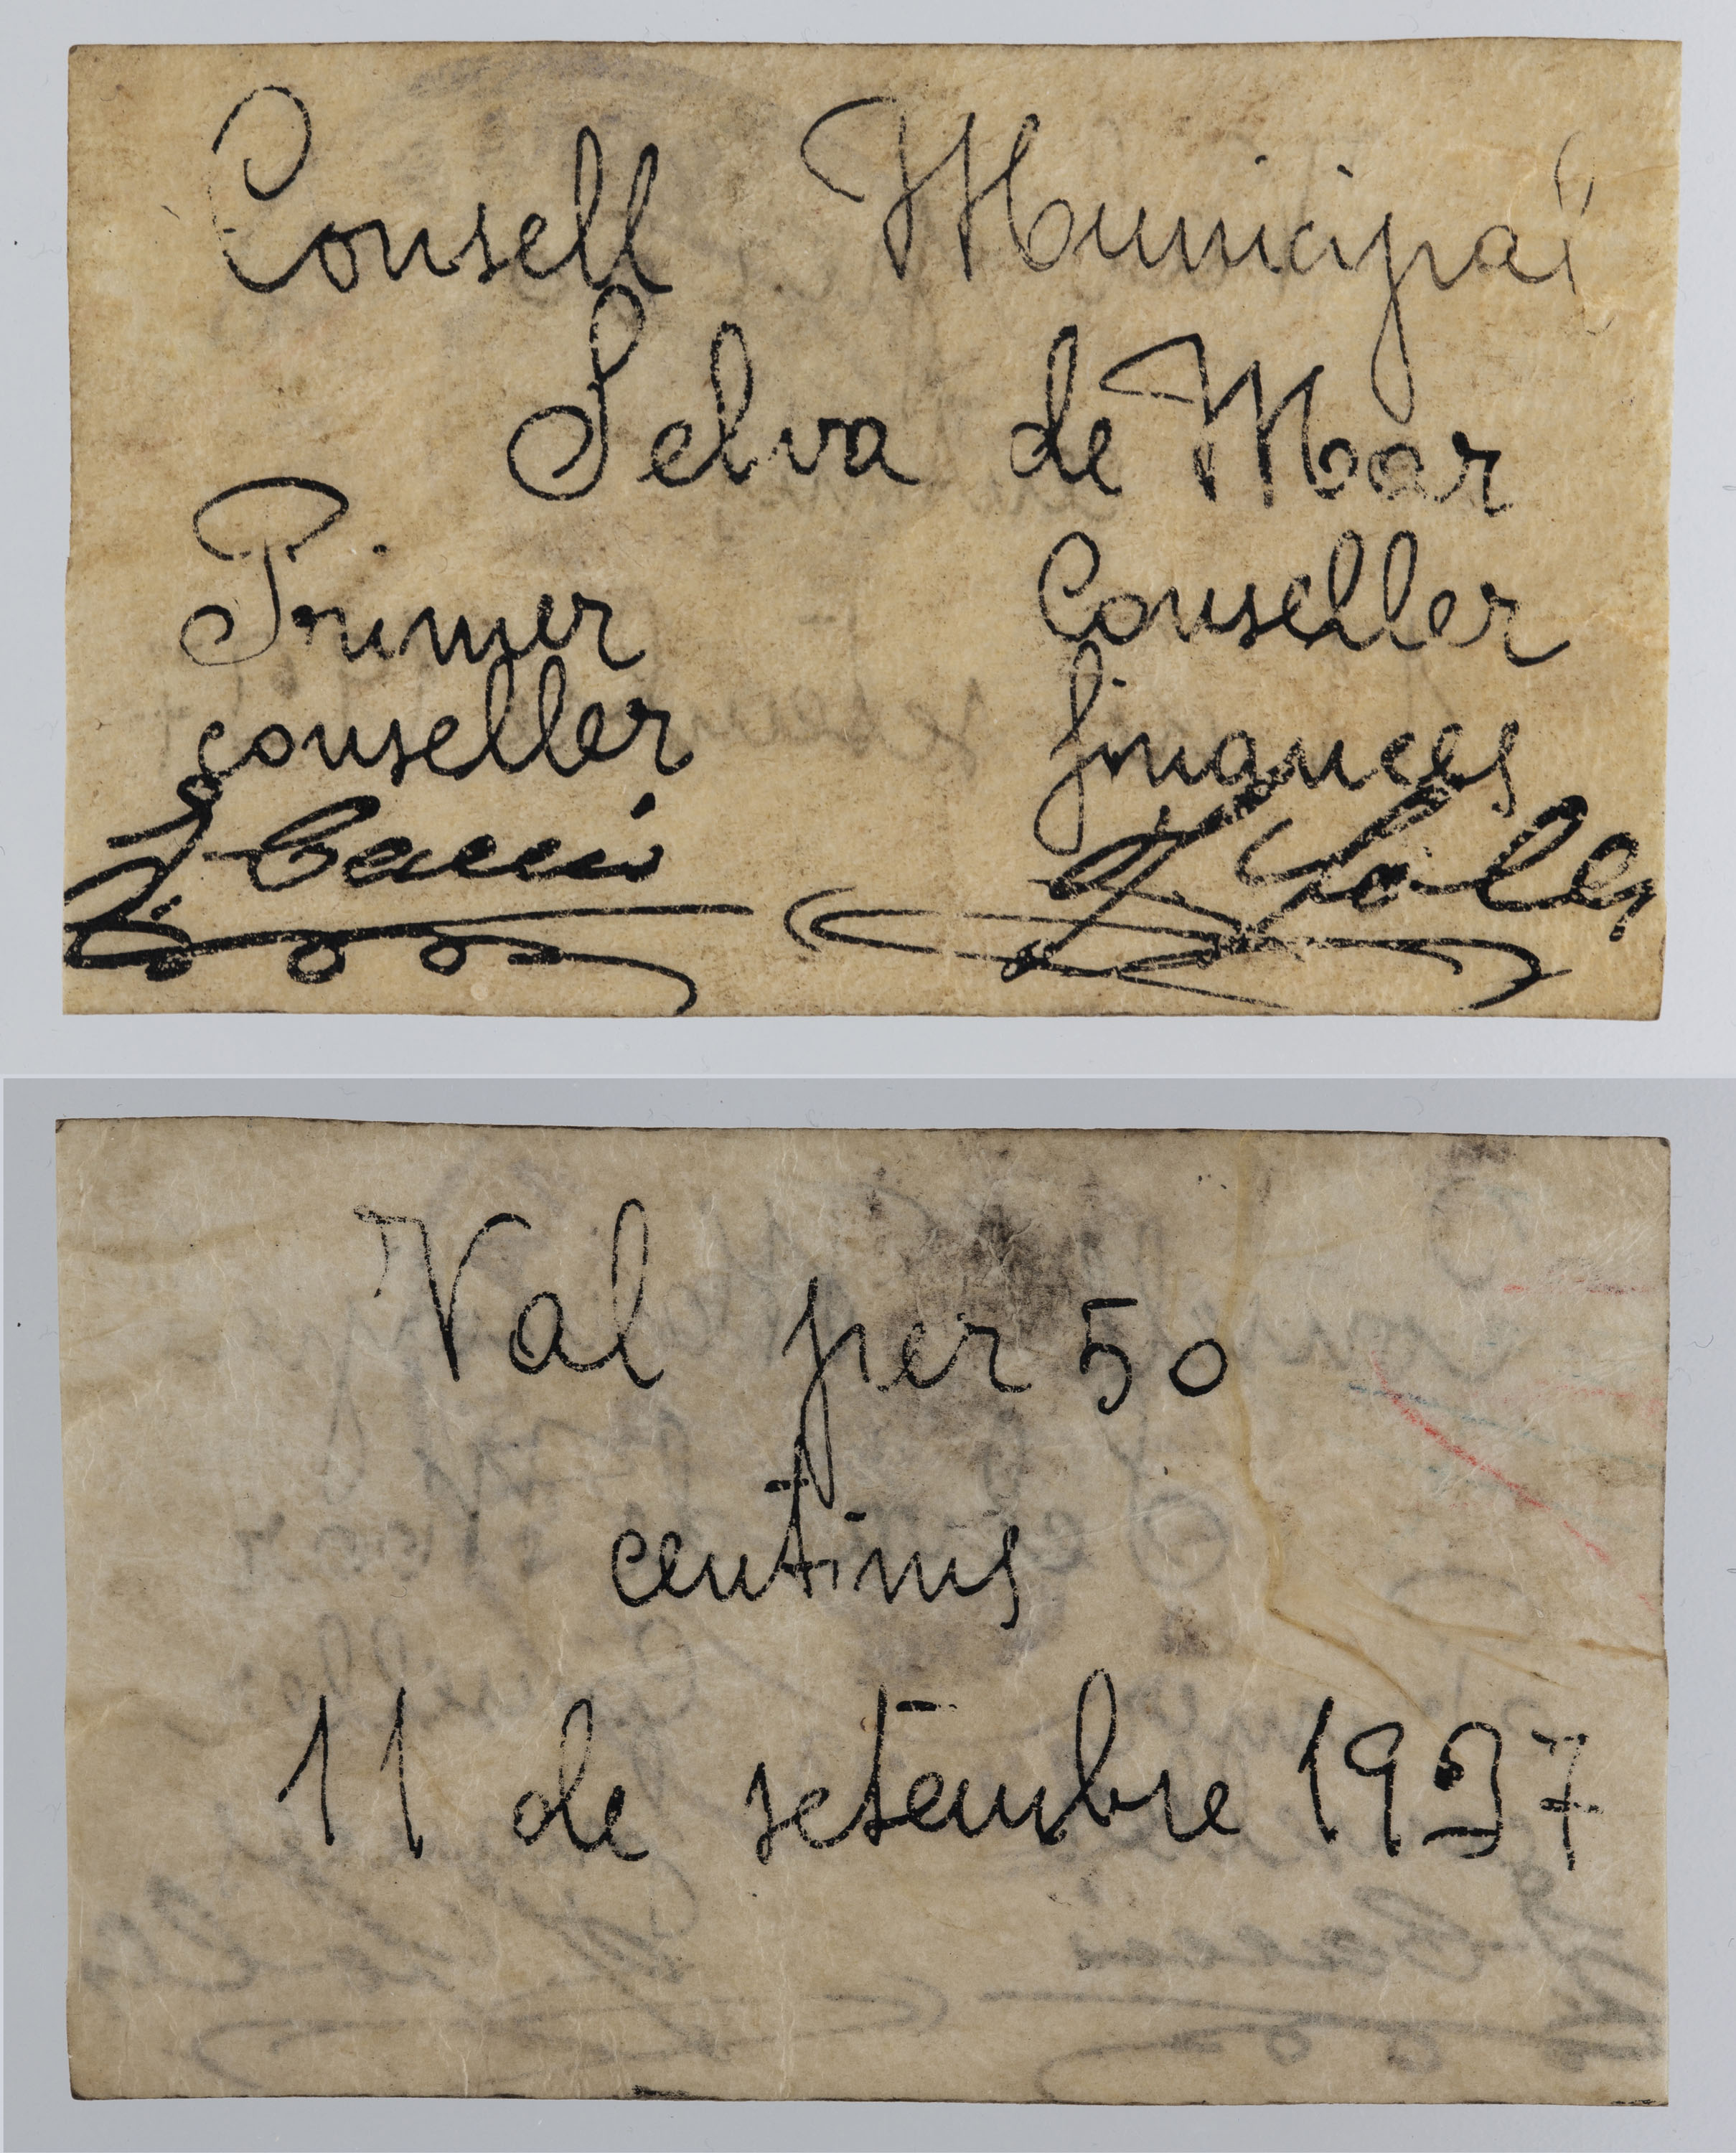 Consell Municipal
Selva de Mar
Primer
conseller
Conseller
finances
Val per 50
centims
11 de setembre 1937